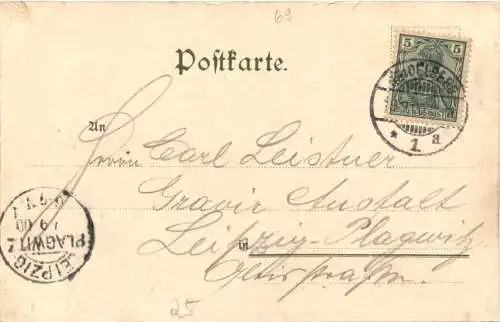 69
Postkarte.
5 5
HEIDELBERG
* 1 a
An
Herrn Carl Leistner
Gravir Anstalt
in Leipzig-Plagwitz
LEIPZIG
PLAGWITZ
7 9 00
25